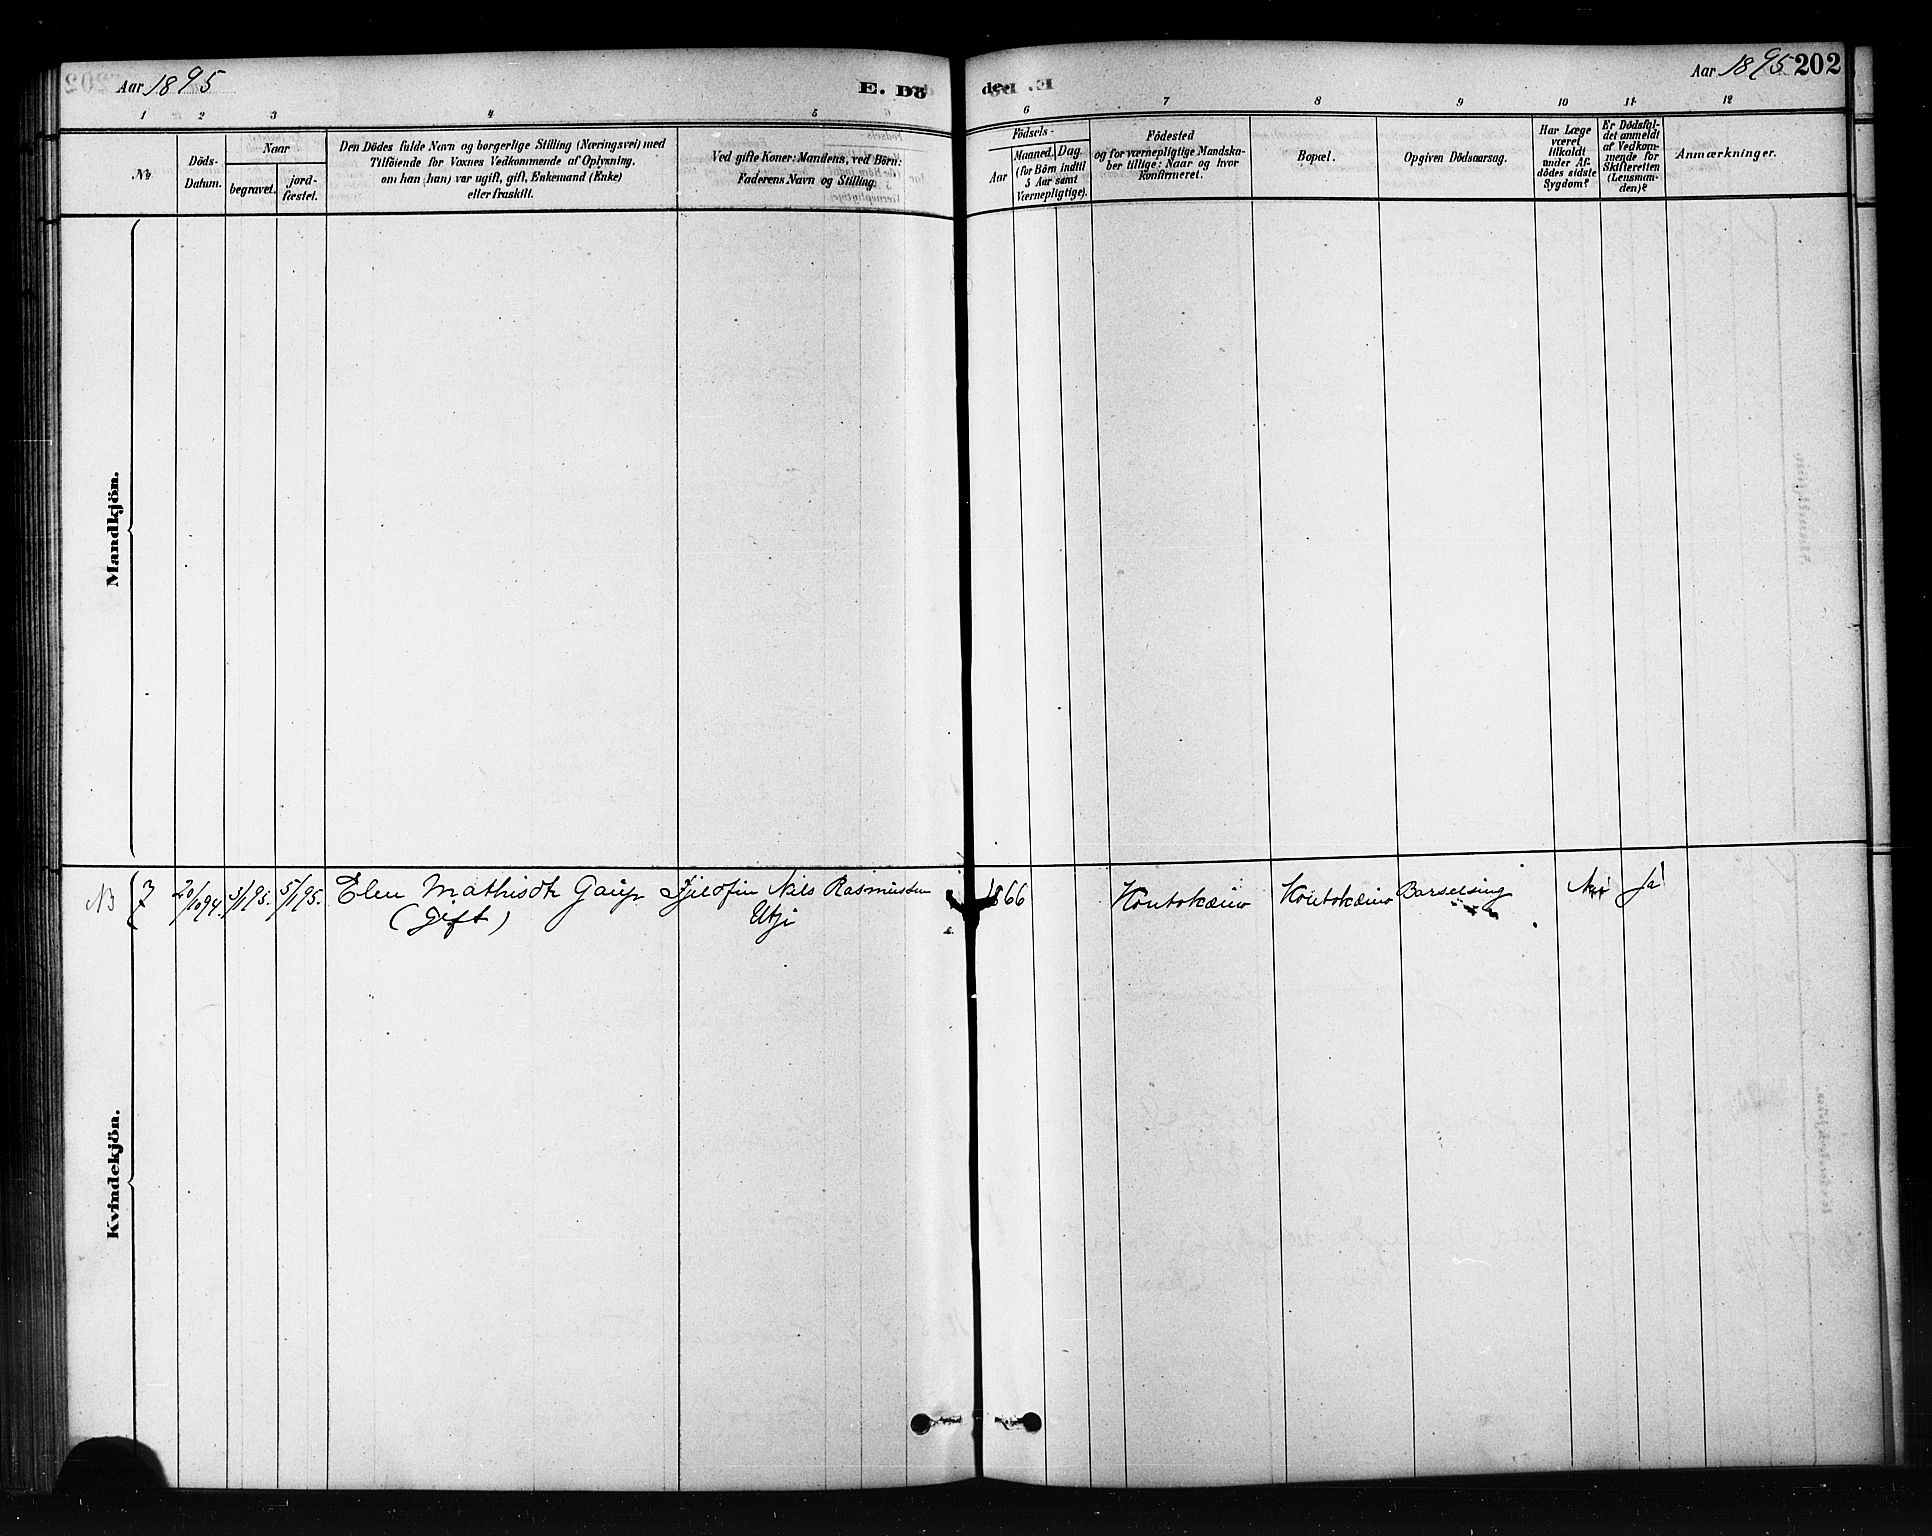 Aar 1895
E. Dö
1 2 3 4 5
No
Döds-
Datum.
Naar
begravet.
jord-
fæstet.
Den Dödes fulde Navn og borgerlige Stilling (Næringsvei) med
Tilföiende for Voxnes Vedkommende af Oplysning,
om han (hun) var ugift, gift, Enkemand (Enke)
eller fraskilt.
Ved gifte Koner: Mandens, ved Börn:
Faderens Navn og Stilling.
Mandkjön.
NB 7 20/10 94. 3/1 95. 5/1 95. Elen Mathisdtr Gaup Fjeldfin Nils Rasmussen
(gift) Utsi
Kvindekjön.
Aar 1895 202
de.
6 7 8 9 10 11 12
Födsels-
Aar
Maaned.
Dag.
(for Börn indtil
5 Aar samt
Værnepligtige).
Födested
og for værnepligtige Mandska-
ber tillige: Naar og hvor
konfirmeret.
Bopæl.
Opgiven Dödsaarsag.
Har Læge
været
tilkaldt
under Af-
dödes sidste
Sygdom?
Er Dödsfal-
det anmeldt
af Vedkom-
mende for
Skifteretten
(Lensman-
den)?
Anmærkninger.
1866 Koutokæino Koutokæino Barselseng Nei Ja